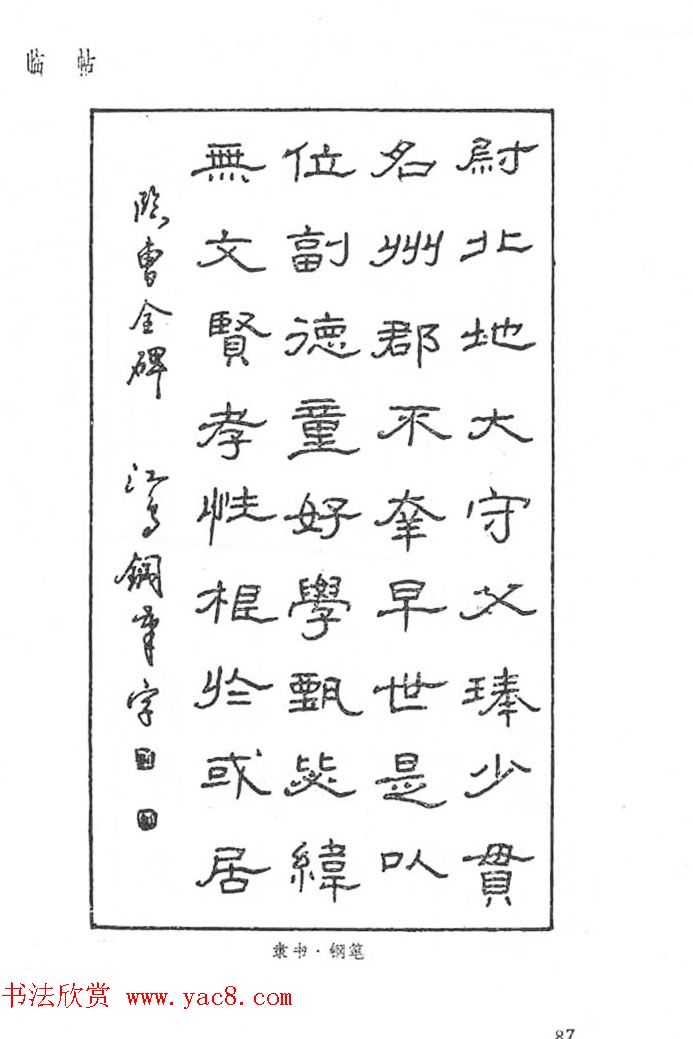 临帖
尉北地大守父琫少貫
名州郡不幸早世是以
位副德童好學甄毖緯
無文賢孝性根於或居
臨曹全碑 江 鋼筆字
隶书·钢笔
书法欣赏 www.yac8.com
87